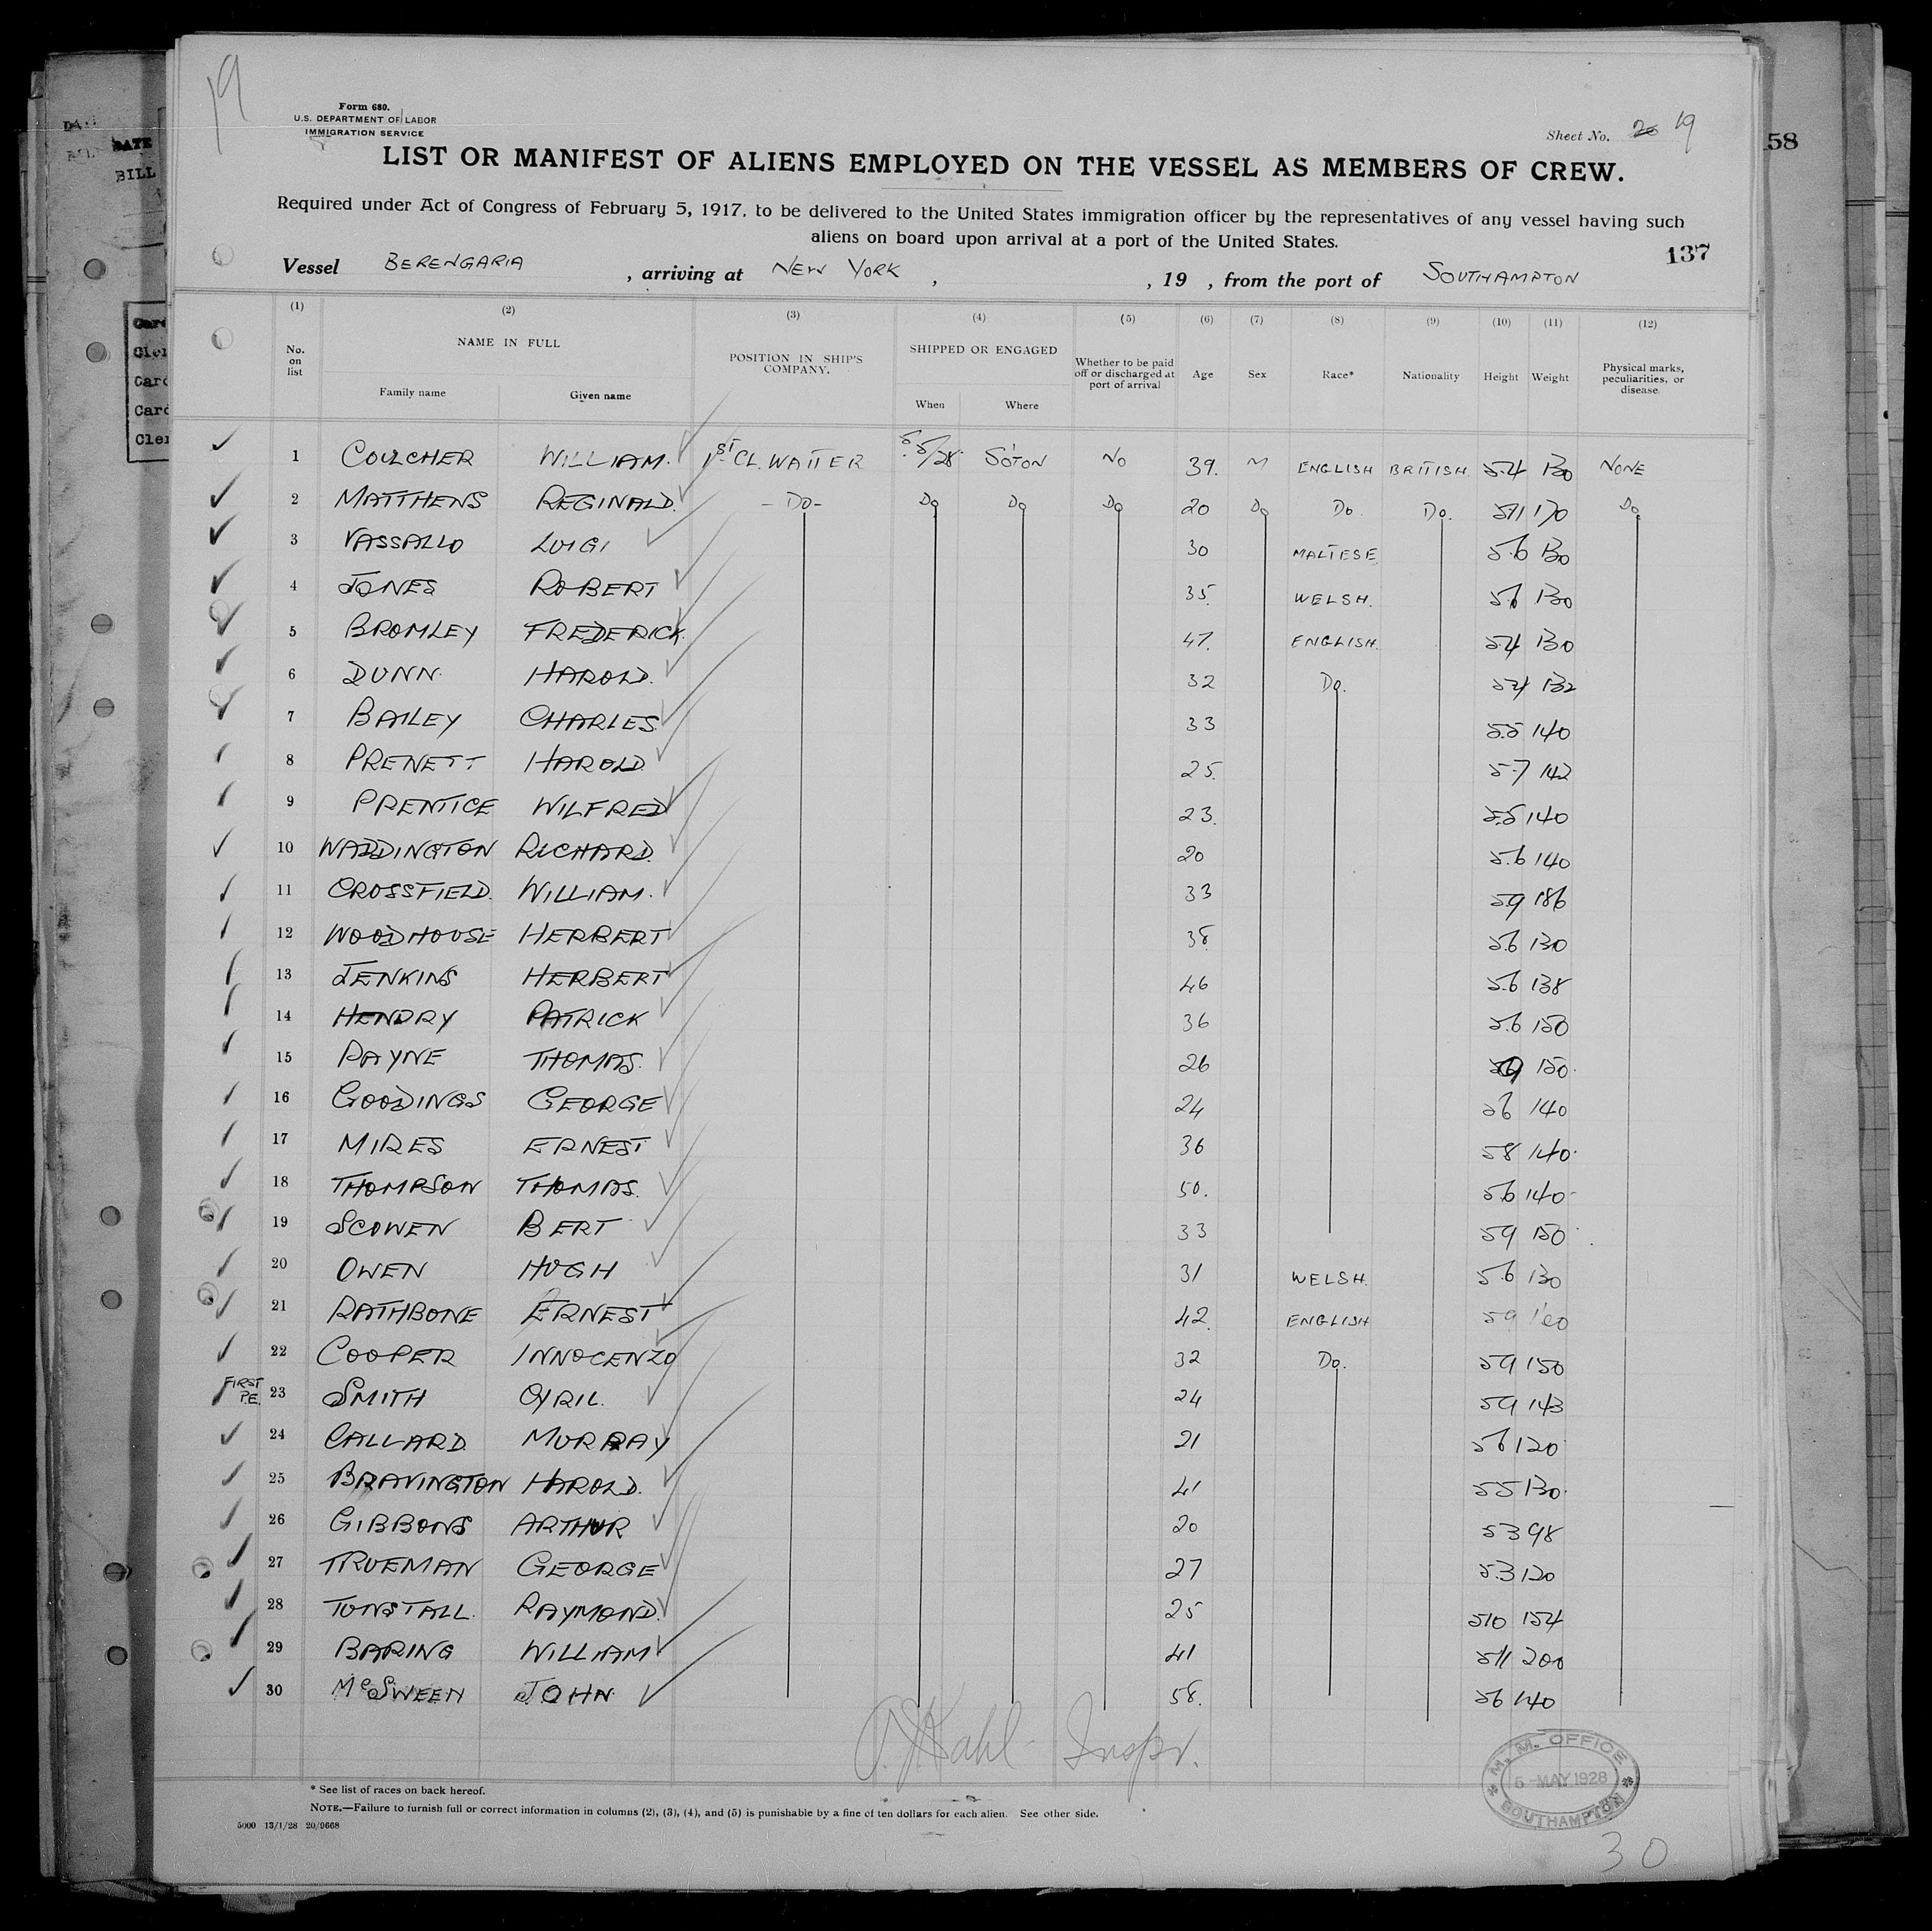 19
Form 680.
U.S. DEPARTMENT OF LABOR
IMMIGRATION SERVICE
Sheet No. 20 19
58
DATE
BILL
LIST OR MANIFEST OF ALIENS EMPLOYED ON THE VESSEL AS MEMBERS OF CREW.
Required under Act of Congress of February 5, 1917, to be delivered to the United States immigration officer by the representatives of any vessel having such
aliens on board upon arrival at a port of the United States.
137
Vessel BERENGARIA , arriving at NEW YORK , , 19 , from the port of SOUTHAMPTON
(1) (2) (3) (4) (5) (6) (7) (8) (9) (10) (11) (12)
No. on list NAME IN FULL Family name Given name POSITION IN SHIP'S COMPANY. SHIPPED OR ENGAGED When Where Whether to be paid off or discharged at port of arrival Age Sex Race* Nationality Height Weight Physical marks, peculiarities, or disease.
1 COULCHER WILLIAM. 1ST CL. WAITER 5/5/28 SOTON NO 39. M ENGLISH BRITISH 5.4 130 NONE
2 MATTHEWS REGINALD. -DO- DO DO DO 20 DO DO. DO. 511 170 DO.
3 VASSALLO LUIGI 30 MALTESE 5.6 130
4 JONES ROBERT 35. WELSH. 5.6 130
5 BROMLEY FREDERICK. 47. ENGLISH. 5.4 130
6 DUNN. HAROLD. 32 DO. 5.4 132
7 BAILEY CHARLES. 33 5.5 140
8 PRENETT HAROLD. 25. 5.7 142
9 PRENTICE WILFRED 23. 5.5 140
10 WADDINGTON RICHARD. 20 5.6 140
11 CROSSFIELD. WILLIAM. 33 5.9 186
12 WOODHOUSE HERBERT 38. 5.6 130
13 JENKINS HERBERT 46 5.6 138
14 HENDRY PATRICK 36 5.6 150
15 PAYNE THOMAS. 26 59 150.
16 GOODINGS GEORGE 24 56 140
17 MIRES ERNEST 36 58 140.
18 THOMPSON THOMAS. 50. 56 140
19 SCOWEN BERT 33 59 150
20 OWEN HUGH 31 WELSH. 5.6 130
21 RATHBONE ERNEST 42. ENGLISH 59 160
22 COOPER INNOCENZO 32 DO. 59 150
FIRST P.E. 23 SMITH CYRIL. 24 59 143
24 CALLARD. MURRAY 21 56 120
25 BRAVINGTON HAROLD. 41 55 130.
26 GIBBONS ARTHUR 20 53 98
27 TRUEMAN GEORGE 27 5.3 120
28 TUNSTALL. RAYMOND. 25 510 154
29 BARING WILLIAM 41 511 200
30 McSWEEN JOHN. 58. 56 140
Kahl Inspr.
* See list of races on back hereof.
NOTE.—Failure to furnish full or correct information in columns (2), (3), (4), and (5) is punishable by a fine of ten dollars for each alien. See other side.
5000 13/1/28 20/9668
M. M. OFFICE
5 MAY 1928
SOUTHAMPTON
30